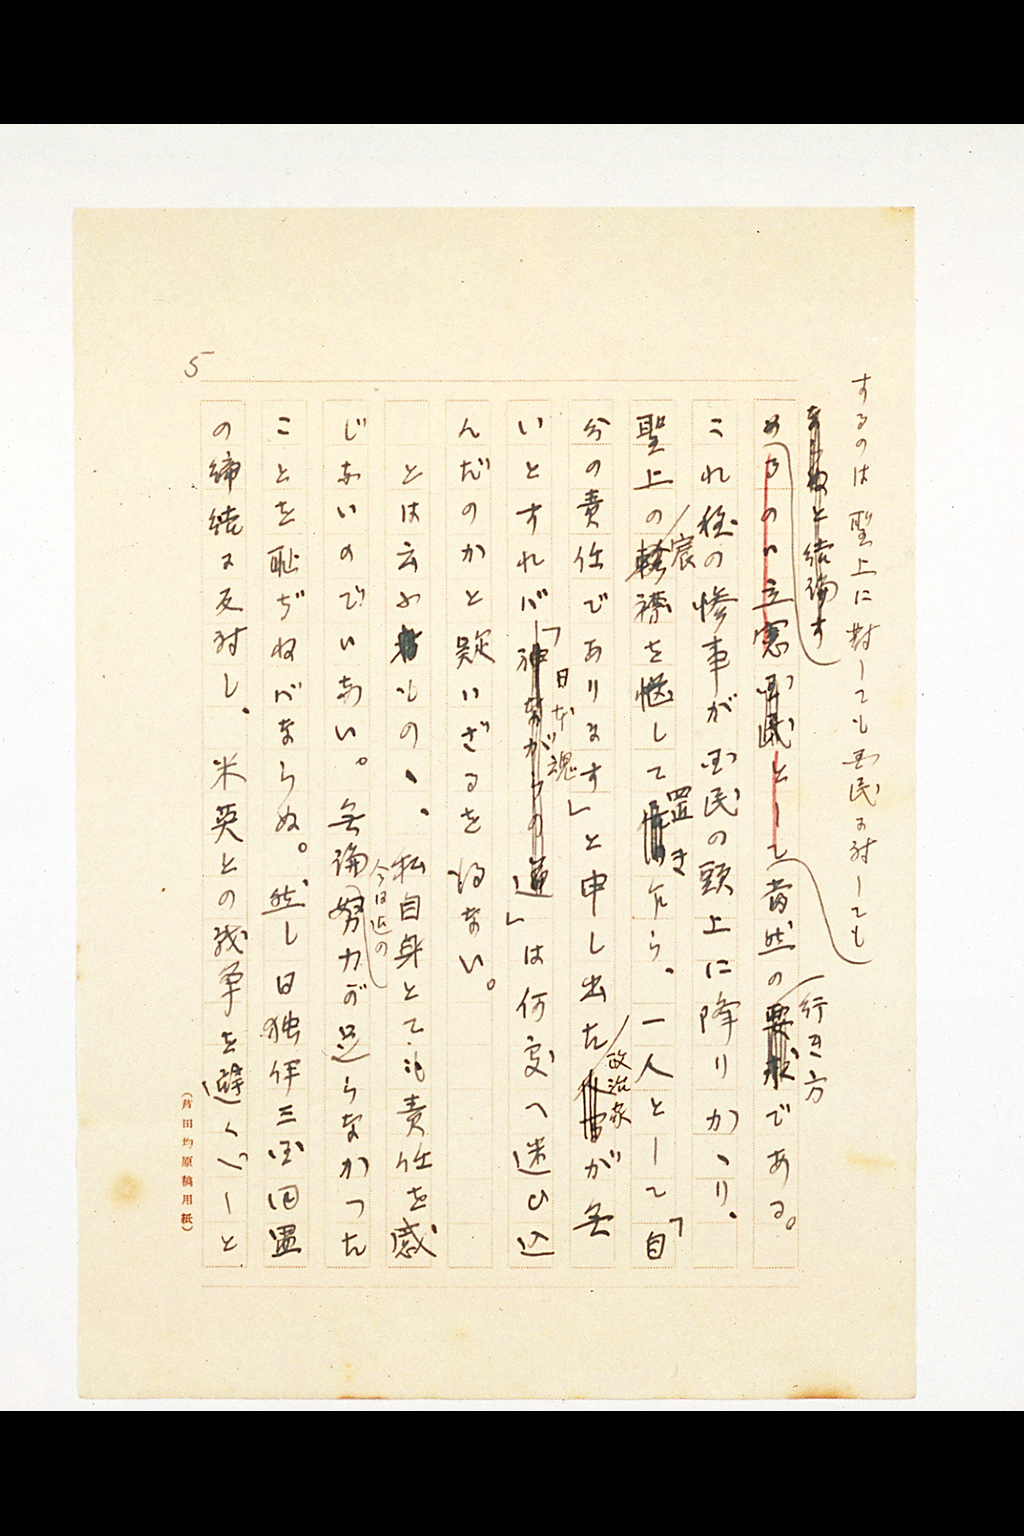 5
するのは聖上に對しても国民に対しても
と結論す
めるのは立憲国民として当然の要求である。
行き方
これ程の惨事が国民の頭上に降りかゝり、
聖上の軫襟を悩して
宸
罣き乍ら、一人として「自
分の責任であります」と申し出た
政治家
が無
いとすれバ「神ながらの道」は何処へ迷ひ込
日本魂
んだのかと疑いざるを得ない。
とは云ふものゝ、私自身とても責任を感
じないのでいない。無論努力が足らなかつた
今日迄の
ことを恥ぢねバならぬ。然し日独伊三国同盟
の締結に反対し、米英との戦争を避くべしと
(芦田均原稿用紙)